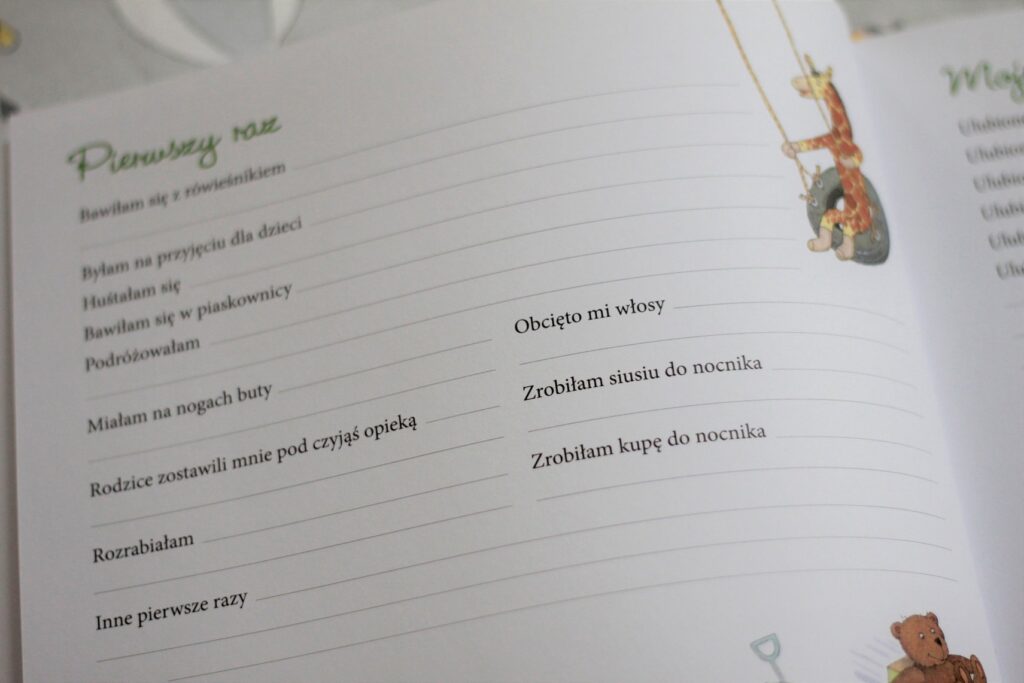 Pierwszy raz
Bawiłam się z rówieśnikiem
Byłam na przyjęciu dla dzieci
Huśtałam się
Bawiłam się w piaskownicy
Podróżowałam
Miałam na nogach buty
Rodzice zostawili mnie pod czyjąś opieką
Rozrabiałam
Inne pierwsze razy
Obcięto mi włosy
Zrobiłam siusiu do nocnika
Zrobiłam kupę do nocnika